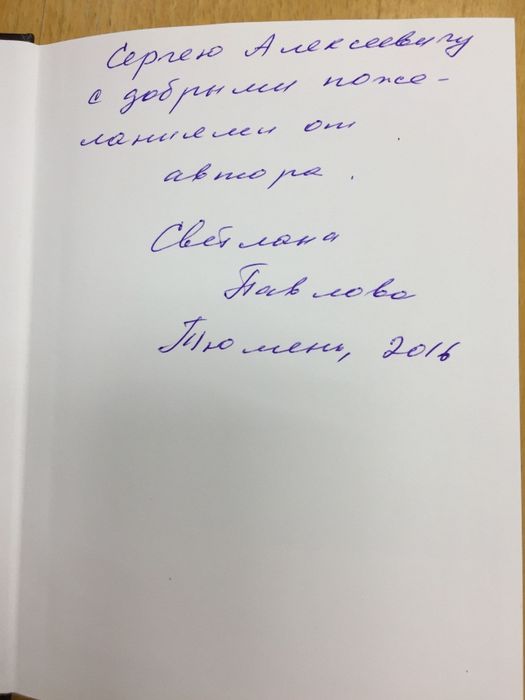 Сергею Алексеевичу
с добрыми поже-
ланиями от
автора.
Светлана
Павлова
Тюмень, 2016